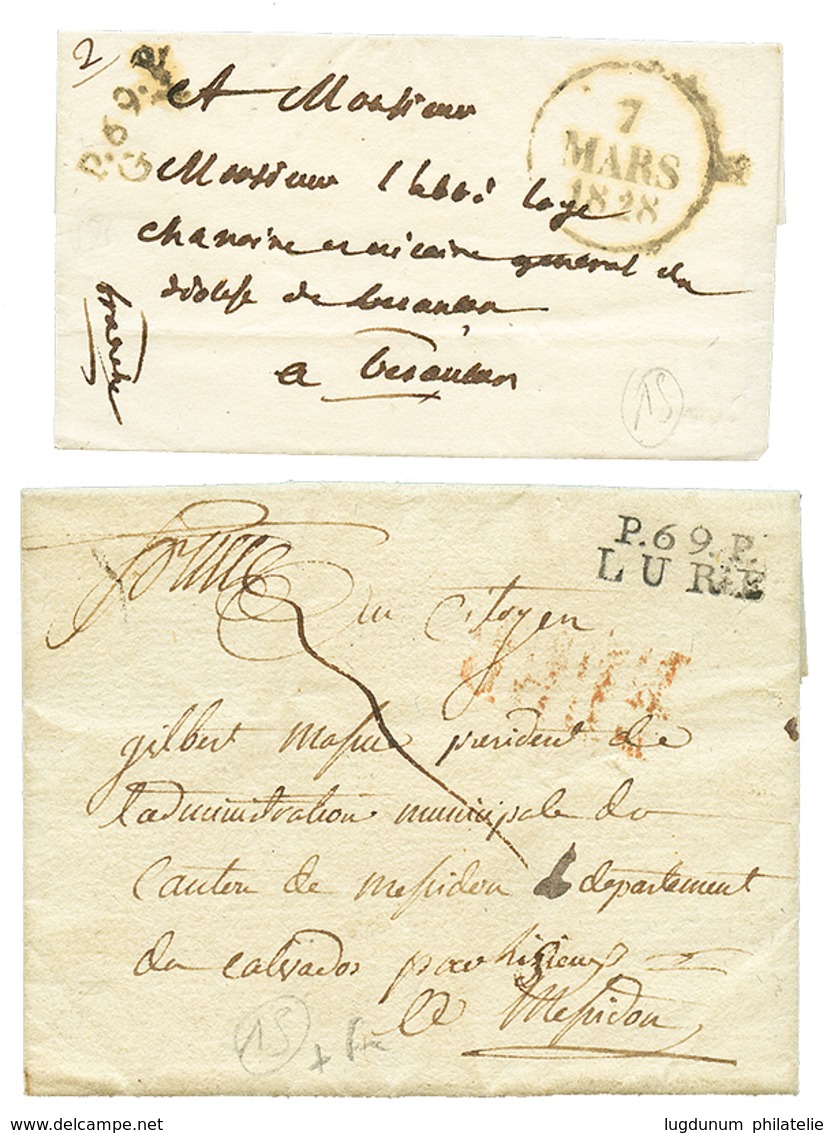 2
P.69.P.
A Monsieur
7
MARS
1828
Monsieur l'abbé
chanoine et vicaire général du
diocese de besancon
a besancon
franche
15
P.69.P.
LURE
au Citoyen
gilbert président de
l'administration municipale du
canton de Mesidon departement
du calvados par Lisieux
a Mesidon
15
lugdunum philatelie